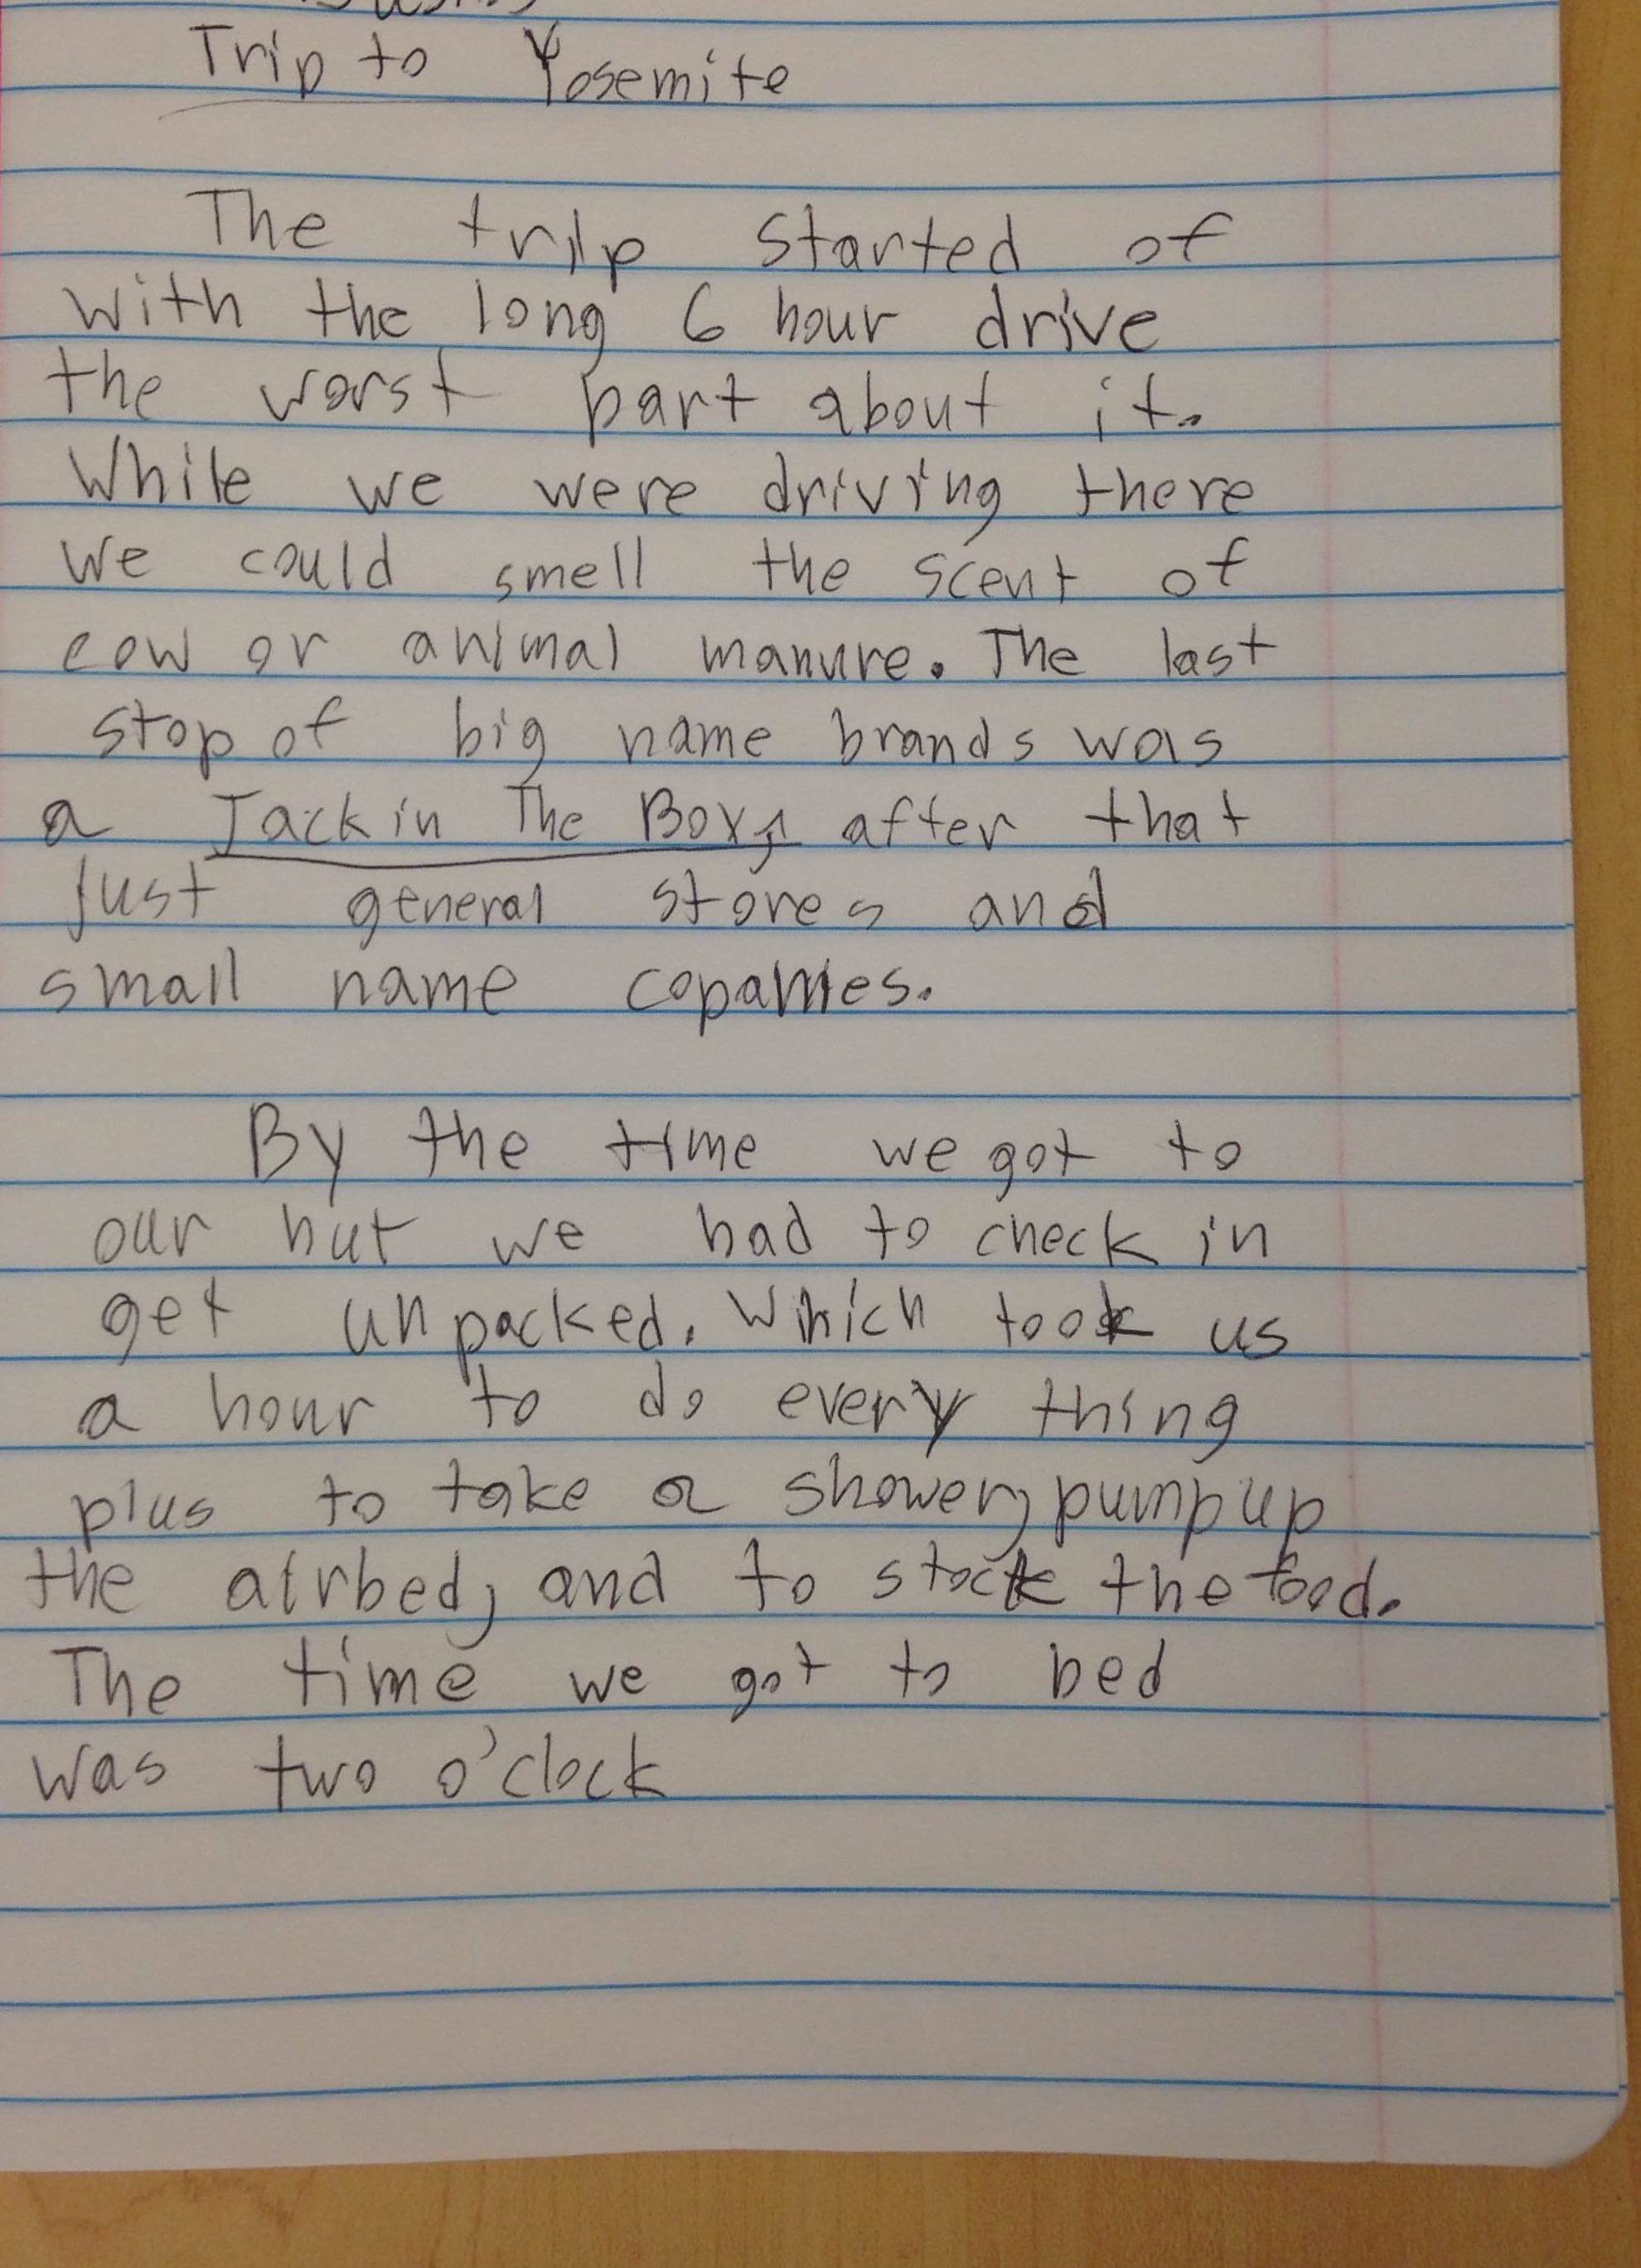 Trip to Yosemite
The trip started of
with the long 6 hour drive
the worst part about it.
While we were driving there
we could smell the scent of
cow or animal manure. The last
stop of big name brands was
a Jack in The Box, after that
just general stores and
small name copanies.
By the time we got to
our hut we had to check in
get unpacked. Which took us
a hour to do every thing
plus to take a shower, pump up
the airbed, and to stock the food.
The time we got to bed
was two o'clock